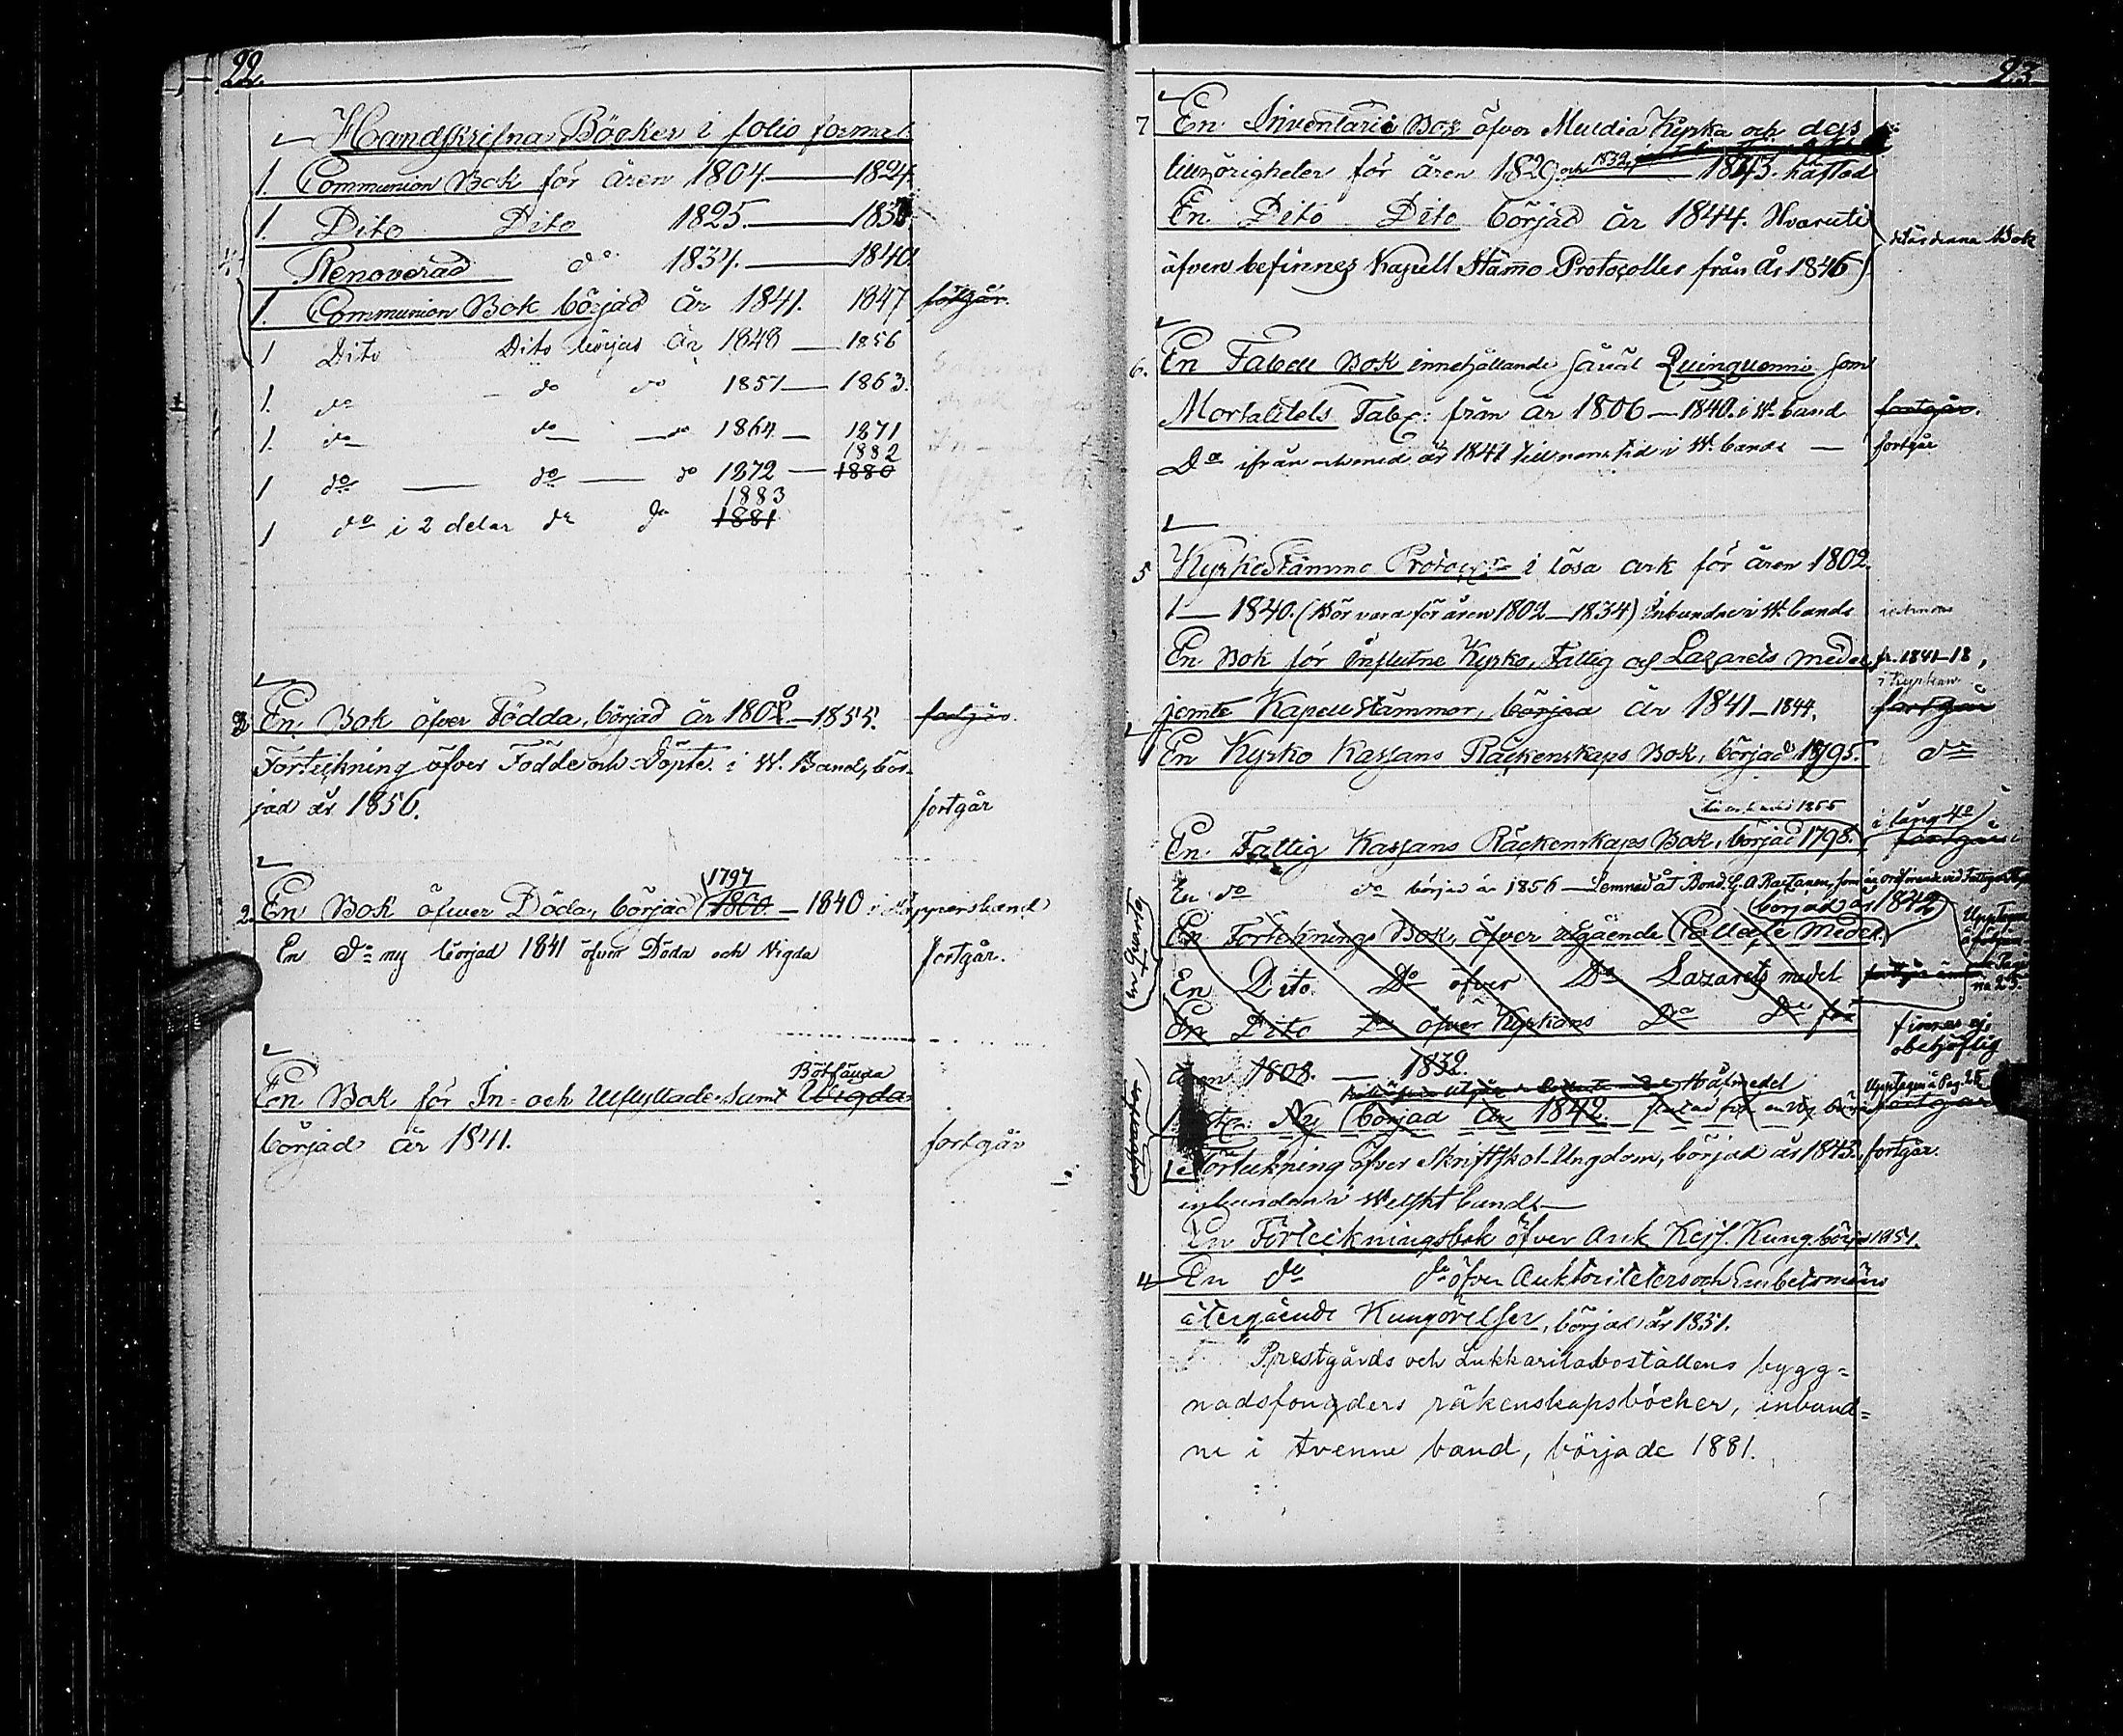 22.
Handskrifna Böcker i folio format
1. Communion Bok för åren 1804.—1824.
1. Dito Dito 1825.—183
Renoverad do 1834.—1840
1. Communion Bok börjad år 1841. 1847 fortgår.
1 Dito Dito börjas år 1848 — 1856
1. do do do 1857 — 1863.
1. do do do 1864 — 1871
1882
1 do — do — do 1872 — 1880
1883
1 do i 2 delar do do 1881
3 En Bok öfver Födda, börjad år 180 —1855. fortgår.
Förtekning öfver Födde och Döpte i W. Band, bör-
jad år 1856. fortgår
1797
2. En Bok öfwer Döda, börjad 1800 — 1840 i Pappersband
En do ny börjad 1841 öfver Döda och Vigda fortgår.
Botfånga
En Bok för In- och Utflyttade samt Wigda
börjad år 1841. fortgår
23
7 En Inventarie Bok öfver Muldia Kyrka och dess
tillhörigheter för åren 1829 och 1832 — 1843. häftad
En Dito Dito börjad år 1844. Hvaruti
äfven befinnes Kapell Stämo Protocoller från År 1846) det är denna Bok
6. En Tabell Bok innehållande såväl Quinquenni som
Mortalitets Tabr: från år 1806 — 1840. i W. band fortgår.
Do ifrån och med år 1841 till nerv. tid i W. bande — fortgår
5 Kyrkostämmo Protocoll i lösa ark för åren 1802
1 — 1840. (Bör vara för åren 1802—1834) Inbundne i W. bande
En Bok för Influtne Kyrko, Fattig och Lazarets medel fr. 1841—18,
i Kyrkan
jemte Kapell Stämmor, börjad år 1841—1844. fortgår
En Kyrko Kassans Räckenskaps Bok, börjad 1795. do
1855 i lång 4o
En Fattig Kassans Räckenskaps Bok, börjad 1798. fortgår
En do do börjad år 1856 — Lemnad åt Bond. G. A Rastanen, som är ordförande vid
börjad år 1842
in quarto
En Förteknings Bok, öfver utgående Collecte Medel.
En Dito Do öfver Do Lazarets medel
En Dito Do öfver Kyrkans Do Do för
finnes ej
åren 1808. — 1832. obehöflig
Håfmedel Upptagen å Pag. 25
Ny börjad år 1842. fortgår
Förtekning öfver Skriftskol-Ungdom, börjad år 1843. fortgår.
inbunden i Welskt band —
En Förteckningsbok öfver Ank. Kejs. Kung. börjad 1851.
4 En do do öfver Auktoriteters och Embetsmäns
återgående Kungörelser, börjad år 1851.
Prestgårds och Lukkarilaboställens bygg=
nadsfonders räkenskapsböcher, inbund=
ne i tvenne band, började 1881.